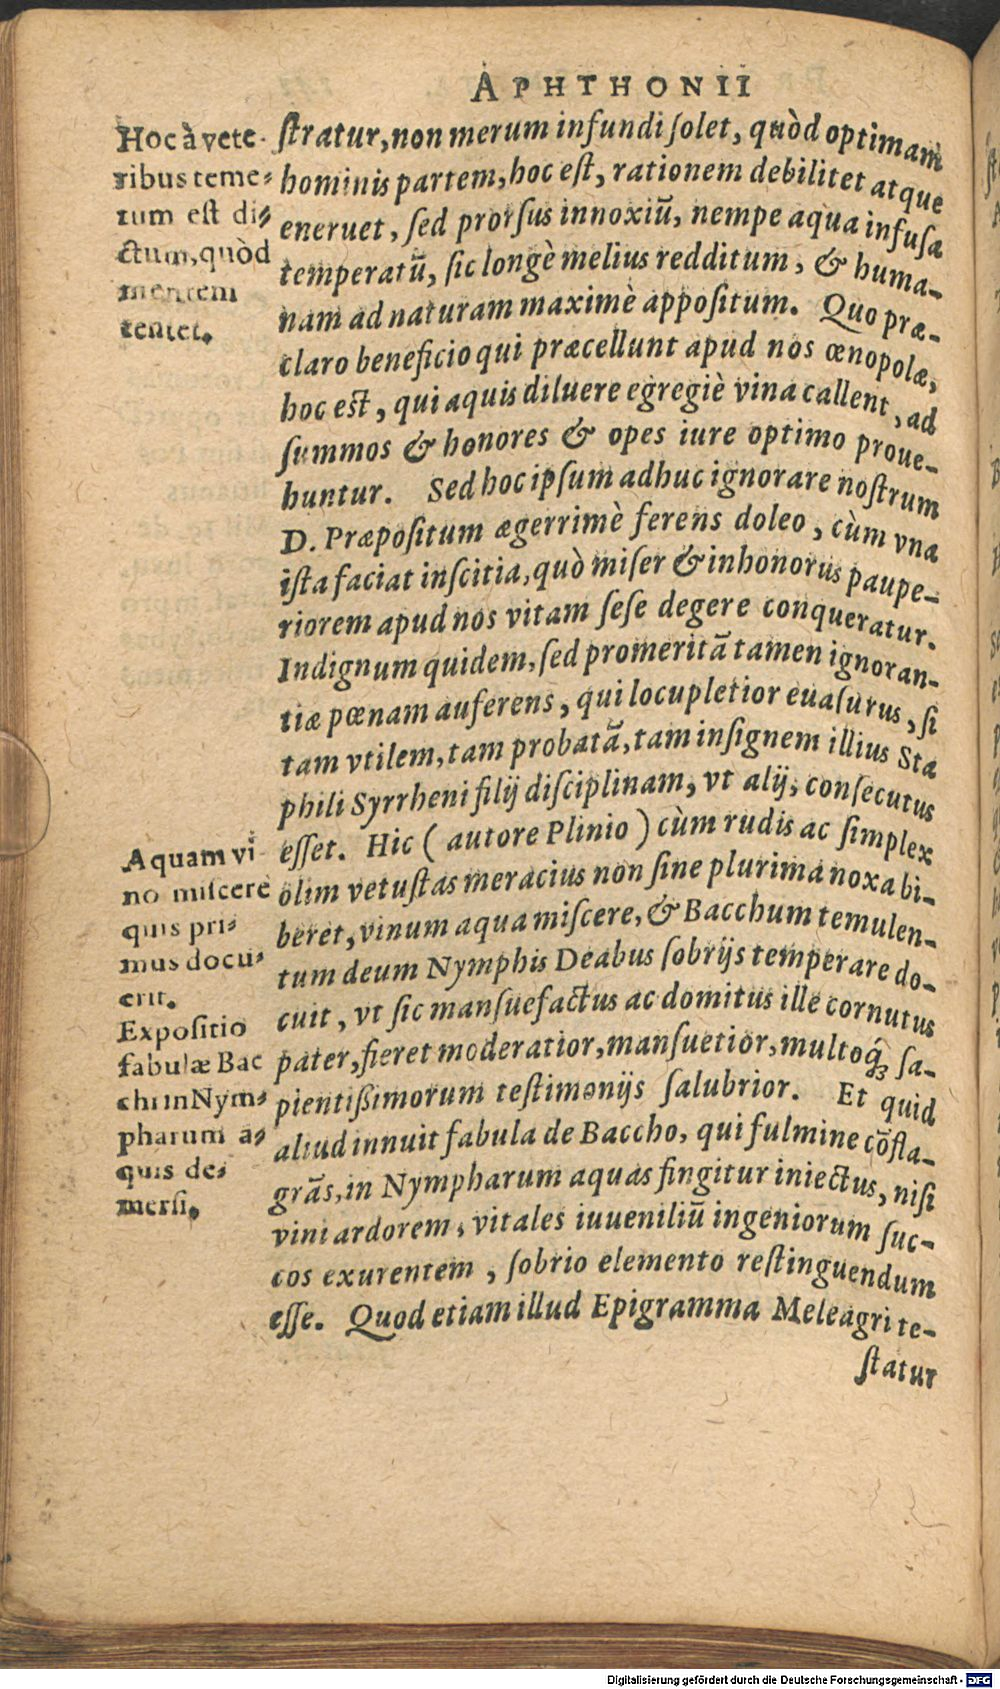 APHTHONII
Hoc à vete-
ribus teme-
tum est di-
ctum, quòd
mentem
tentet.
stratur, non merum infundi solet, quòd optimam
hominis partem, hoc est, rationem debilitet atque
eneruet, sed prorsus innoxiũ, nempe aqua infusa
temperatũ, sic longè melius redditum, & huma-
nam ad naturam maximè appositum. Quo præ-
claro beneficio qui præcellunt apud nos œnopolæ,
hoc est, qui aquis diluere egregiè vina callent, ad
summos & honores & opes iure optimo proue-
huntur. Sed hoc ipsum adhuc ignorare nostrum
D. Præpositum ægerrimè ferens doleo, cùm vna
ista faciat inscitia, quò miser & inhonorus paupe-
riorem apud nos vitam sese degere conqueratur.
Indignum quidem, sed promeritã tamen ignoran-
tiæ pœnam auferens, qui locupletior euasurus, si
tam vtilem, tam probatã, tam insignem illius Sta
phili Syrrheni filij disciplinam, vt alij, consecutus
esset. Hic (autore Plinio) cùm rudis ac simplex
olim vetustas meracius non sine plurima noxa bi-
beret, vinum aqua miscere, & Bacchum temulen-
tum deum Nymphis Deabus sobrijs temperare do-
cuit, vt sic mansuefactus ac domitus ille cornutus
pater, fieret moderatior, mansuetior, multoq́; sa-
pientißimorum testimonijs salubrior. Et quid
aliud innuit fabula de Baccho, qui fulmine cõfla-
grãs, in Nympharum aquas fingitur iniectus, nisi
vini ardorem, vitales iuueniliũ ingeniorum suc-
cos exurentem, sobrio elemento restinguendum
esse. Quod etiam illud Epigramma Meleagri te-
statur
Aquam vi
no miscere
quis pri-
mus docu-
erit.
Expositio
fabulæ Bac
chi in Nym-
pharum a-
quis de-
mersi.
Digitalisierung gefördert durch die Deutsche Forschungsgemeinschaft - DFG